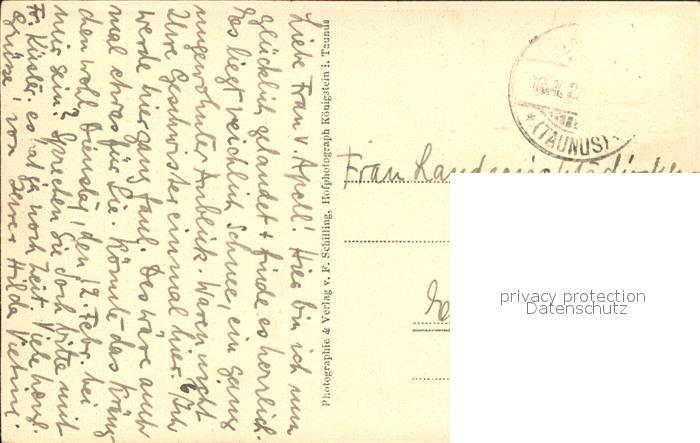 Liebe Frau v. Apell! Hier bin ich nun
glücklich gelandet + finde es herrlich.
Es liegt reichlich Schnee, ein ganz
ungewohnter Anblick. Waren nicht
Ihre Geschwister einmal hier? Ich
werde hier ganz faul. Das wäre auch
mal etwas für Sie. Könnte das Kränz
chen wohl Dienstag, den 12. Febr. bei
mir sein? Sprechen Sie doch bitte mit
Fr. Küster. es hat ja noch Zeit. Viele herzl.
Grüsse von Ihrer Hilda
Photographie & Verlag v. F. Schilling, Hofphotograph Königstein i. Taunus
*(TAUNUS)*
Frau
privacy protection
Datenschutz